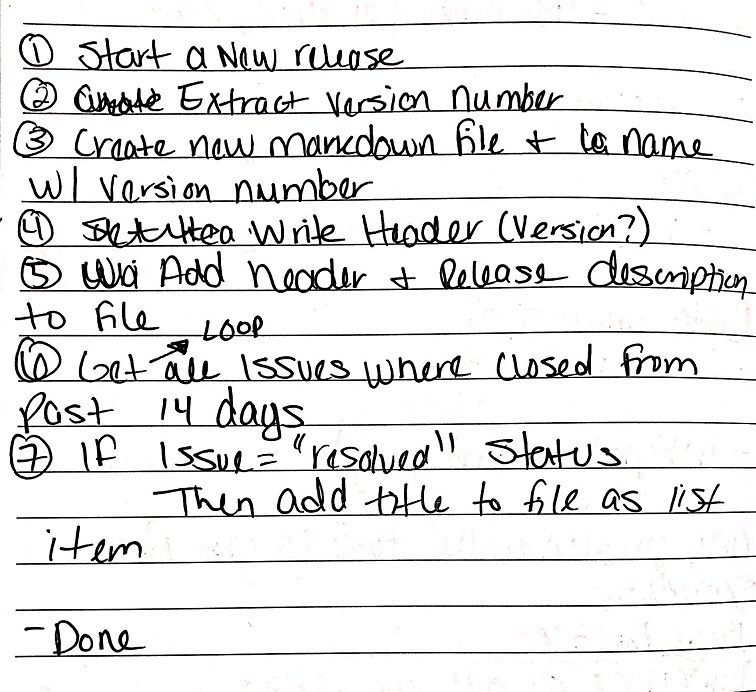 ① Start a New release
② Extract version number
③ Create new markdown file + name
w/ version number
④ Write Header (Version?)
⑤ Add header + Release description
to file
LOOP
⑥ Get all issues where closed from
past 14 days
⑦ IF Issue = "resolved" Status
Then add title to file as list
item
- Done